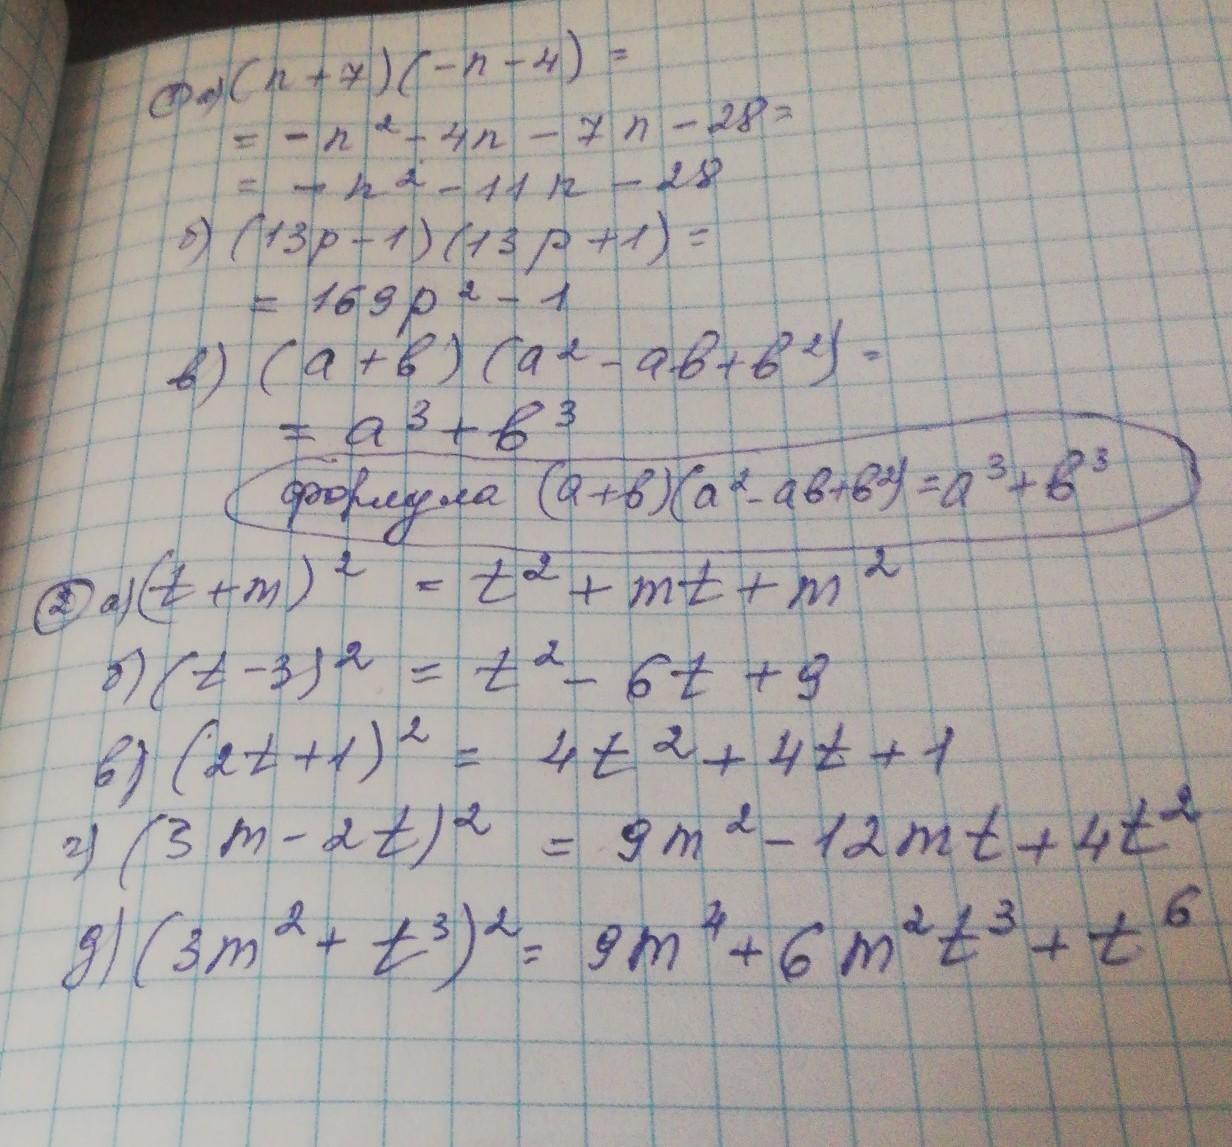 ① а) (n + 7)(-n - 4) =
= -n² - 4n - 7n - 28 =
= -n² - 11n - 28
б) (13p - 1)(13p + 1) =
= 169p² - 1
в) (a + b)(a² - ab + b²) =
= a³ + b³
формула (a+b)(a²-ab+b²)=a³+b³
② а) (t + m)² = t² + mt + m²
б) (t - 3)² = t² - 6t + 9
в) (2t + 1)² = 4t² + 4t + 1
г) (3m - 2t)² = 9m² - 12mt + 4t²
д) (3m² + t³)² = 9m⁴ + 6m²t³ + t⁶